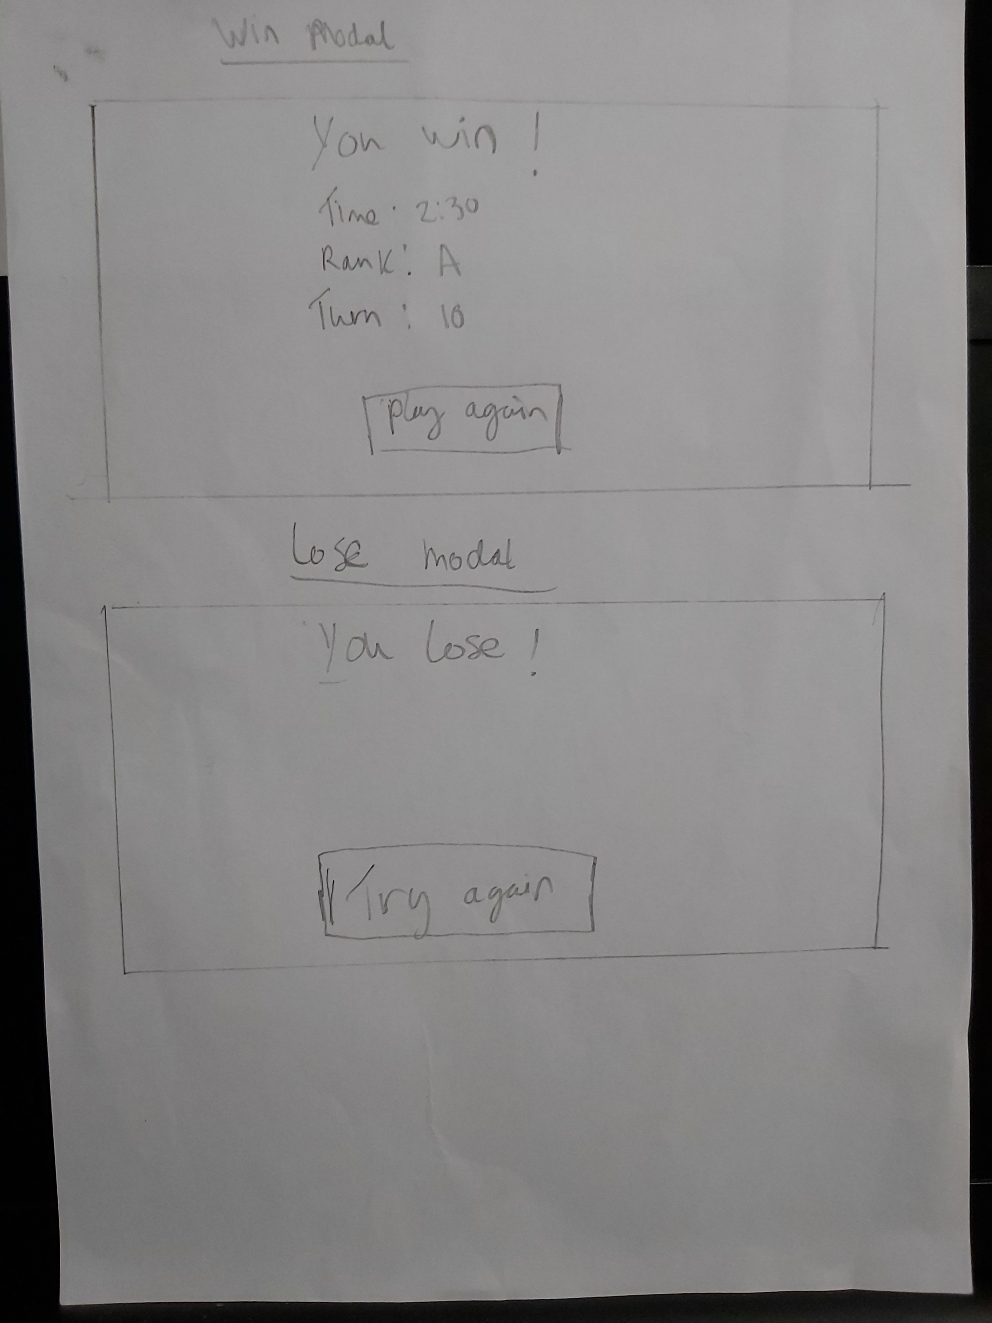 Win Modal
You win !
Time : 2:30
Rank : A
Turn : 10
play again
Lose modal
You Lose !
Try again